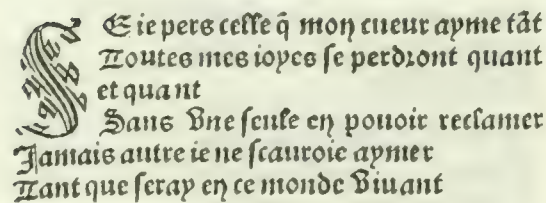 SE ie pers celle q̃ mon cueur ayme tãt
Toutes mes ioyes se perdront quant
et quant
Sans vne seule en pouoir reclamer
Jamais autre ie ne scauroie aymer
Tant que seray en ce monde viuant